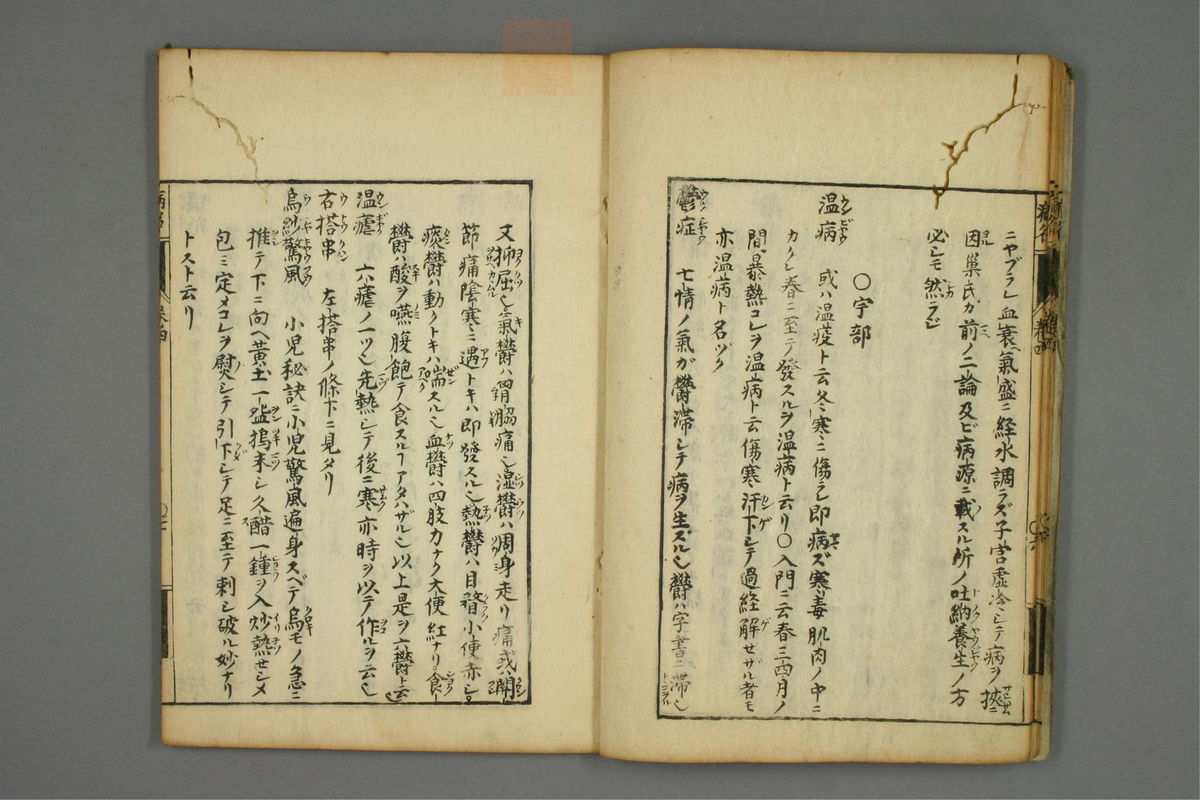 ニヤブラレ血衰氣盛ニ経水調ラズ子宮虚冷シテ病ヲ挾ニ
因巣氏カ前ノ二論及ビ病源ニ載スル所ノ吐納養生ノ方
必シモ然ラズ
〇宇部
温病 或ハ温疫ト云冬寒ニ傷ラレ即病ズ寒毒肌肉ノ中ニ
カクレ春ニ至テ發スルヲ温病ト云リ〇入門ニ云春三四月ノ
間暴熱コレヲ温病ト云傷寒汗下シテ過経解セザル者モ
亦温病ト名ヅク
鬱症 七情ノ氣ガ鬱滞シテ病ヲ生ズル也鬱ハ字書ニ滞也
又抑屈也氣鬱ハ胸脇痛也湿鬱ハ周身走リ痛或ハ関
節痛陰寒ニ遇トキハ即發スル也熱鬱ハ目瞀小便赤シ
痰鬱ハ動クトキハ喘スル也血鬱ハ四肢力ナク大便紅ナリ食
鬱ハ酸ヲ嚥腹飽テ食スルヿアタハザル也以上是ヲ六鬱ト云
温瘧 六瘧ノ一ツ也先熱シテ後ニ寒亦時ヲ以テ作ルヲ云也
右搭串 左搭串ノ條下ニ見タリ
烏紗驚風 小児秘訣ニ小児驚風遍身スベテ烏モノ急ニ
推テ下ニ向ヘ黄土一盌搗末シ久醋一鍾ヲ入炒熱セシメ
包ミ定メコレヲ熨シテ引下シテ足ニ至テ刺シ破ル妙ナリ
トスト云リ